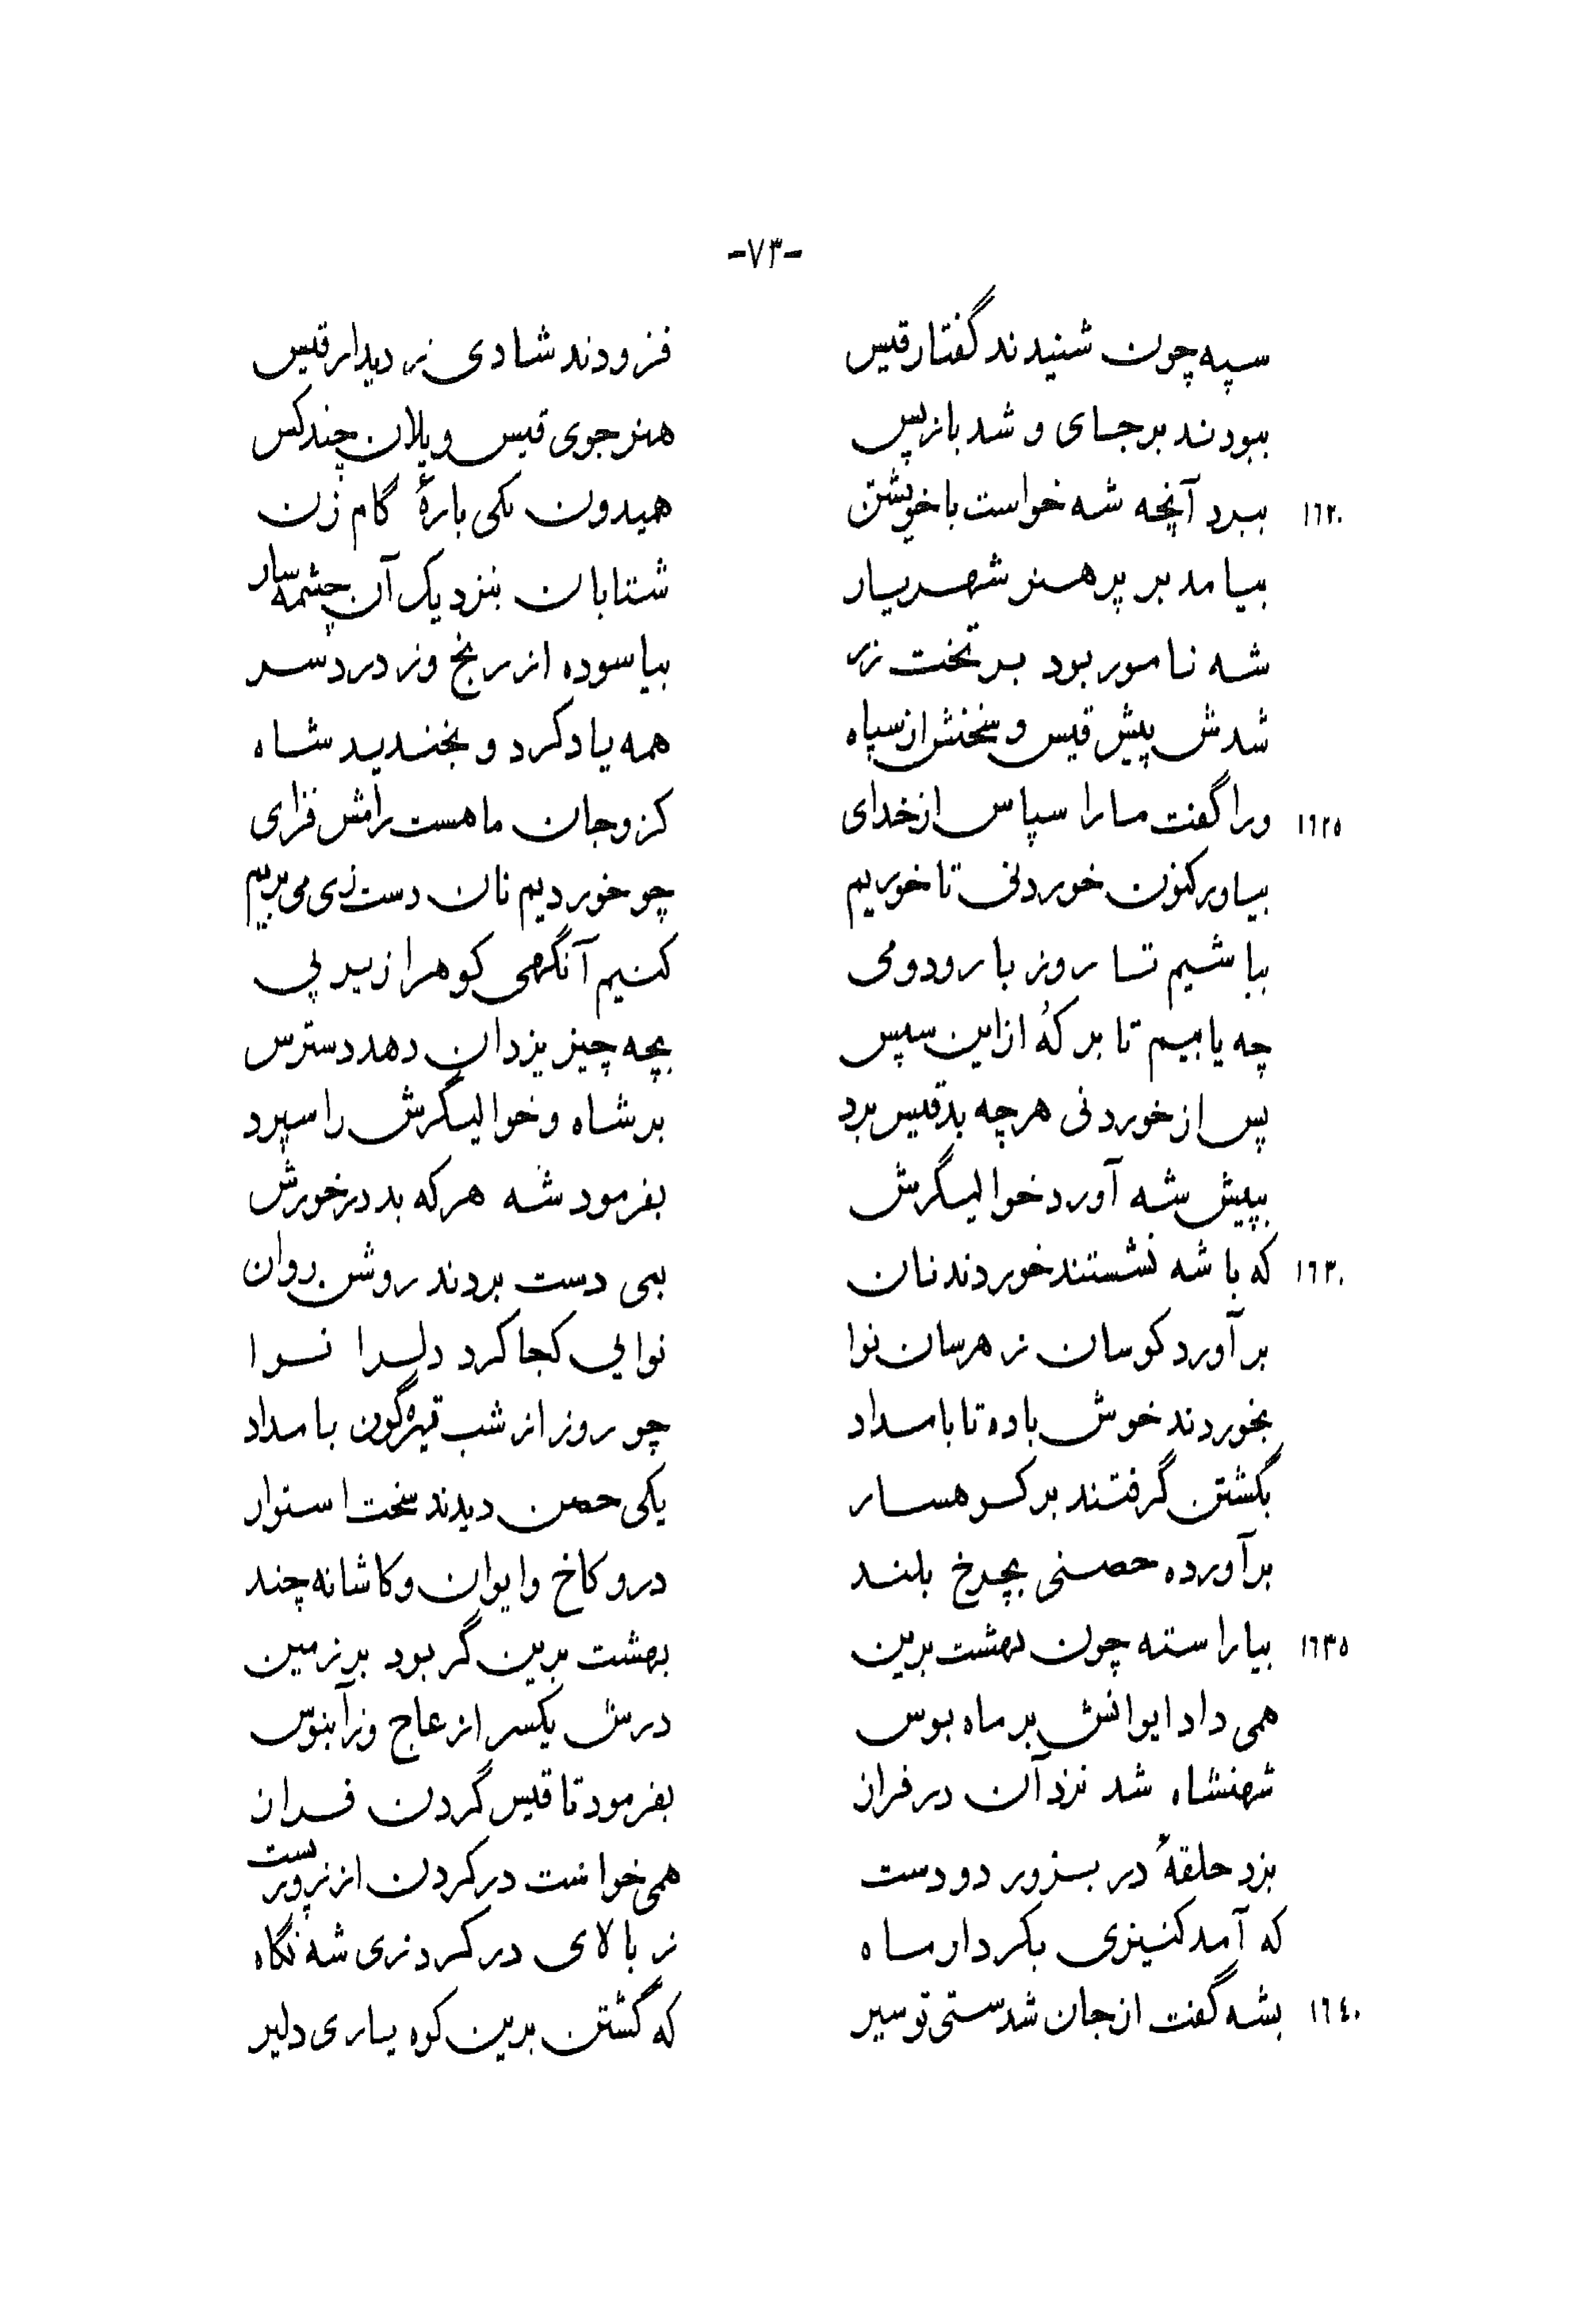 -۷۳-
سپه چون شنیدند گفتار قیس فزودند شادی ز دیدار قیس
ببودند بر جای و شد باز پس هنرجوی قیس و یلان چند کس
۱۶۲۰ ببرد آنچه شه خواست با خویشتن همیدون یکی بارهٔ گام زن
بیامد بر پر هنر شهریار شتابان بنزدیک آن چشمه سار
شه نامور بود بر تخت زر بیاسوده از رنج وز درد سر
شدش پیش قیس و سخنش از سپاه همه یاد کرد و بخندید شاه
۱۶۲۵ ورا گفت ما را سپاس از خدای کزو جان ما هست رامش فزای
بیاور کنون خوردنی تا خوریم چو خوردیم نان دست زی می بریم
بباشیم تا روز با رود و می کنیم آنگهی کوه را زیر پی
چه یابیم تا بر کُه از این سپس بچه چیز یزدان دهد دسترس
پس از خوردنی هر چه بد قیس برد بر شاه و خوالیگرش را سپرد
بپیش شه آورد خوالیگرش بفرمود شه هر که بد در خورش
۱۶۳۰ که با شه نشستند خوردند نان بمی دست بردند روشن روان
بر آورد کوسان ز هر سان نوا نوایی کجا کرد دلرا نوا
بخوردند خوش باده تا بامداد چو روز از شب تیره گون بامداد
بگشتن گرفتند بر کوهسار یکی حصن دیدند سخت استوار
برآورده حصنی بچرخ بلند درو کاخ و ایوان و کاشانه چند
۱۶۳۵ بیاراسته چون بهشت برین بهشت برین گر بود بر زمین
همی داد ایوانش بر ماه بوس درش یکسر از عاج وز آبنوس
شهنشاه شد نزد آن در فراز بفرمود تا قیس گردن فراز
بزد حلقهٔ در بزور دو دست همی خواست در کردن از زور پست
که آمد کنیزی بکردار ماه ز بالای در کرد زی شه نگاه
۱۶۴۰ بشه گفت از جان شدستی تو سیر که گشتن برین کوه یاری دلیر